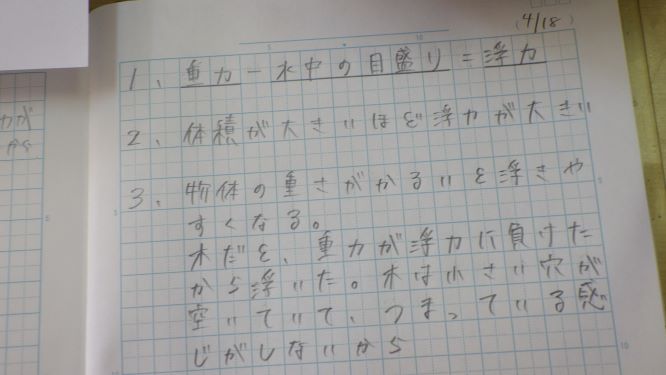 (4/18)
1、重力－水中の目盛り＝浮力
2、体積が大きいほど浮力が大きい
3、物体の重さがかるいと浮きや
すくなる。
木だと、重力が浮力に負けた
から浮いた。木は小さい穴が
空いていて、つまっている感
じがしないから